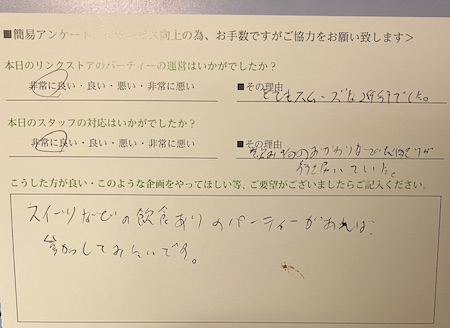 ■簡易アンケート サービス向上の為、お手数ですがご協力をお願い致します＞
本日のリンクストアのパーティーの運営はいかがでしたか？
非常に良い・良い・悪い・非常に悪い
■その理由
とてもスムーズな進行でした。
本日のスタッフの対応はいかがでしたか？
非常に良い・良い・悪い・非常に悪い
■その理由
飲み物のおかわりなど気配りが
行き届いていた。
こうした方が良い・このような企画をやってほしい等、ご要望がございましたらご記入ください。
スイーツなどの飲食ありのパーティーがあれば、
参加してみたいです。